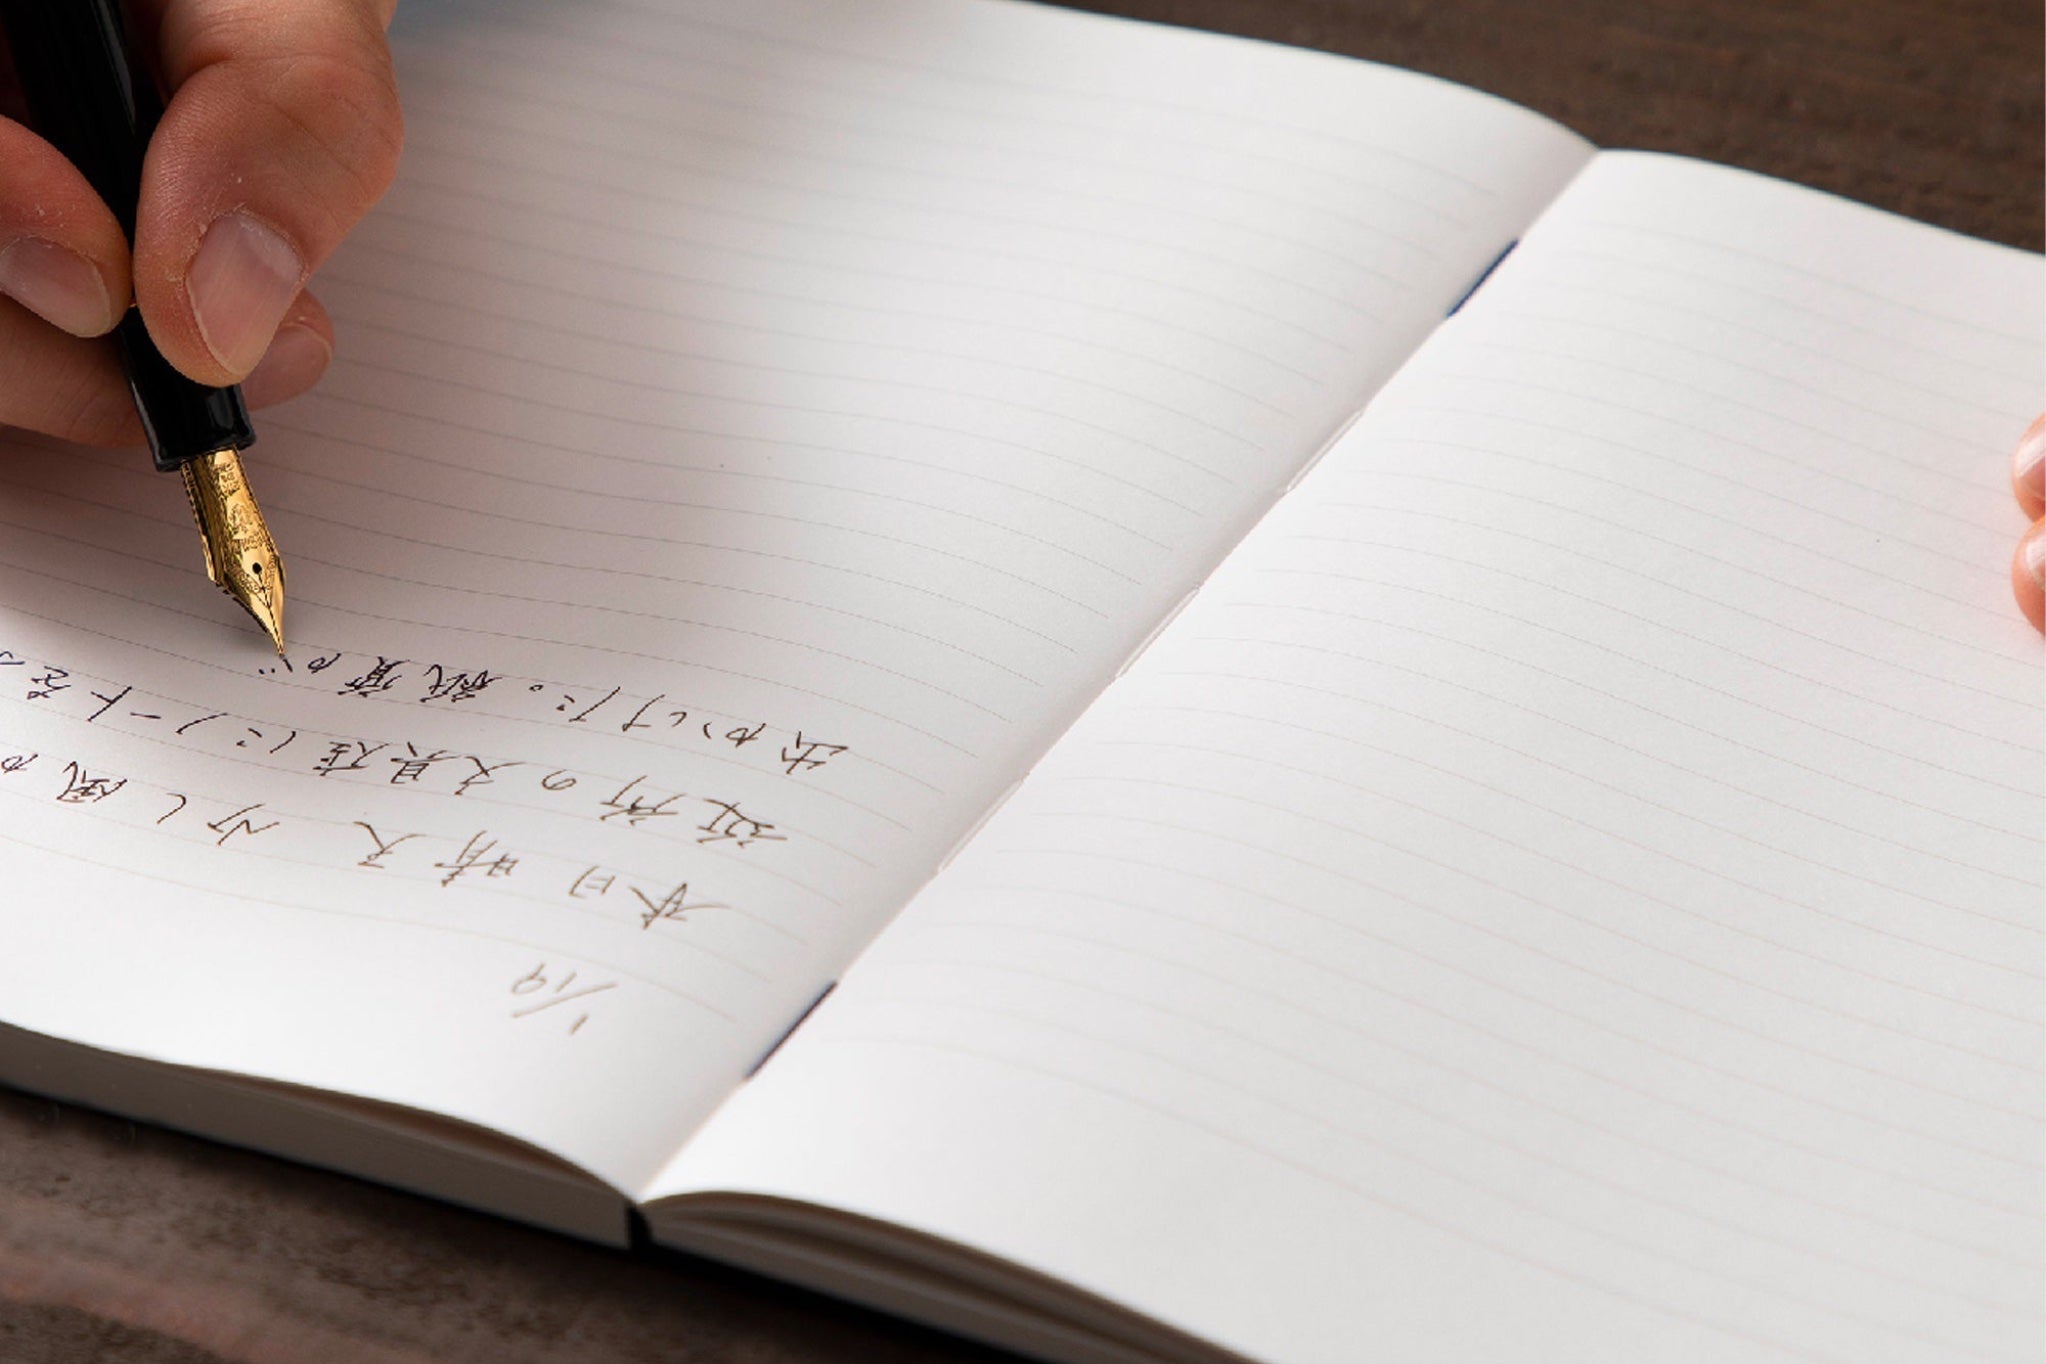 1/19
本日晴天 少し風か
近所の文具店にノートを
出かけた。紙質が